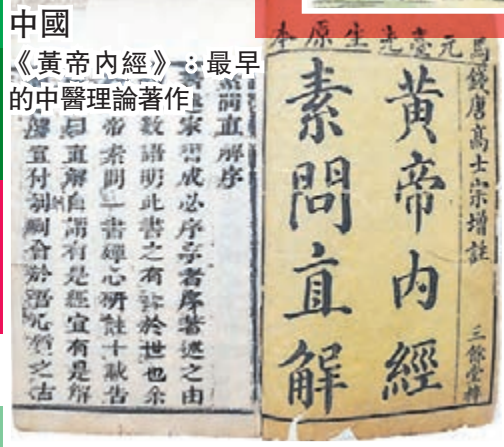 中國
《黃帝內經》：最早
的中醫理論著作
元臺先生原本
馬錢唐高士宗增註
三餘堂梓
黃帝內經
素問直解
問直解序
家習成必序序者序著述之由
數語明此書之有於世也余
帝素問一書殫心研註十載告
直解自謂有是經宜有是解
宜付剞劂會於潛心之古